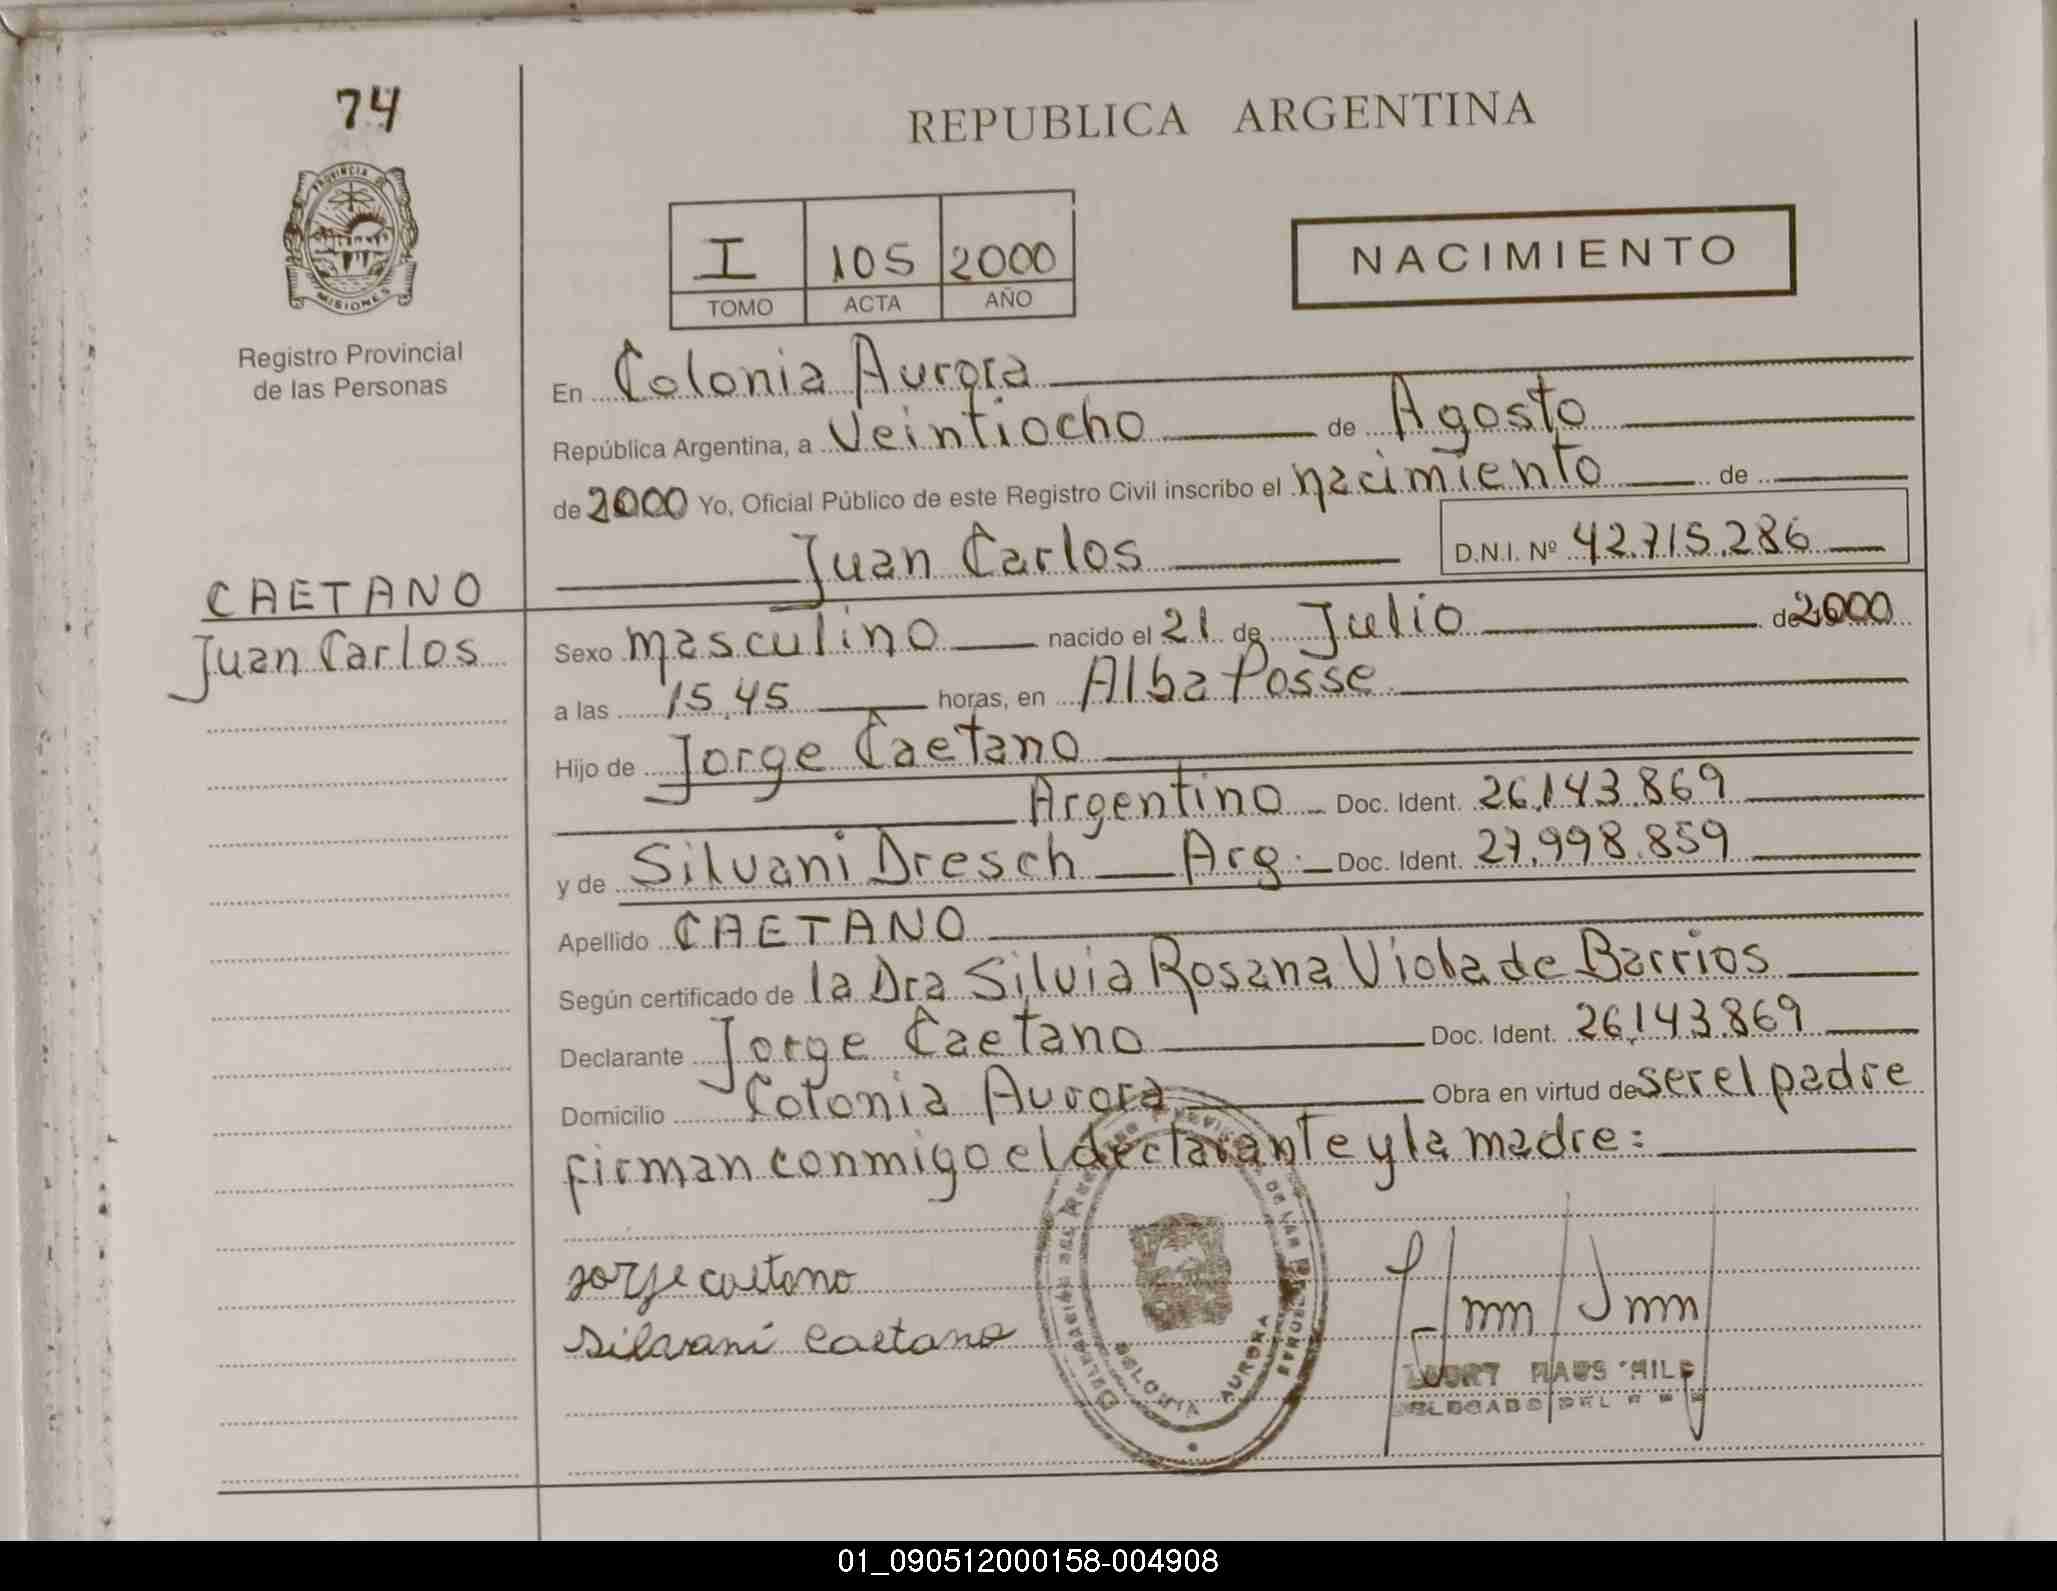 74
REPUBLICA ARGENTINA
PROVINCIA DE
MISIONES
I 105 2000
TOMO ACTA AÑO
NACIMIENTO
Registro Provincial
de las Personas
En Colonia Aurora
República Argentina, a Veintiocho de Agosto
de 2000 Yo, Oficial Público de este Registro Civil inscribo el nacimiento de
Juan Carlos D.N.I. Nº 42.715.286
CAETANO
Juan Carlos
Sexo masculino nacido el 21 de Julio de 2000
a las 15,45 horas, en Alba Posse
Hijo de Jorge Caetano
Argentino Doc. Ident. 26.143.869
y de Silvani Dresch Arg. Doc. Ident. 27.998.859
Apellido CAETANO
Según certificado de la Dra Silvia Rosana Viola de Barrios
Declarante Jorge Caetano Doc. Ident. 26.143.869
Domicilio Colonia Aurora Obra en virtud de ser el padre
firman conmigo el declarante y la madre:
Jorge caetano
Silvani Caetano
COLONIA AURORA
01_090512000158-004908